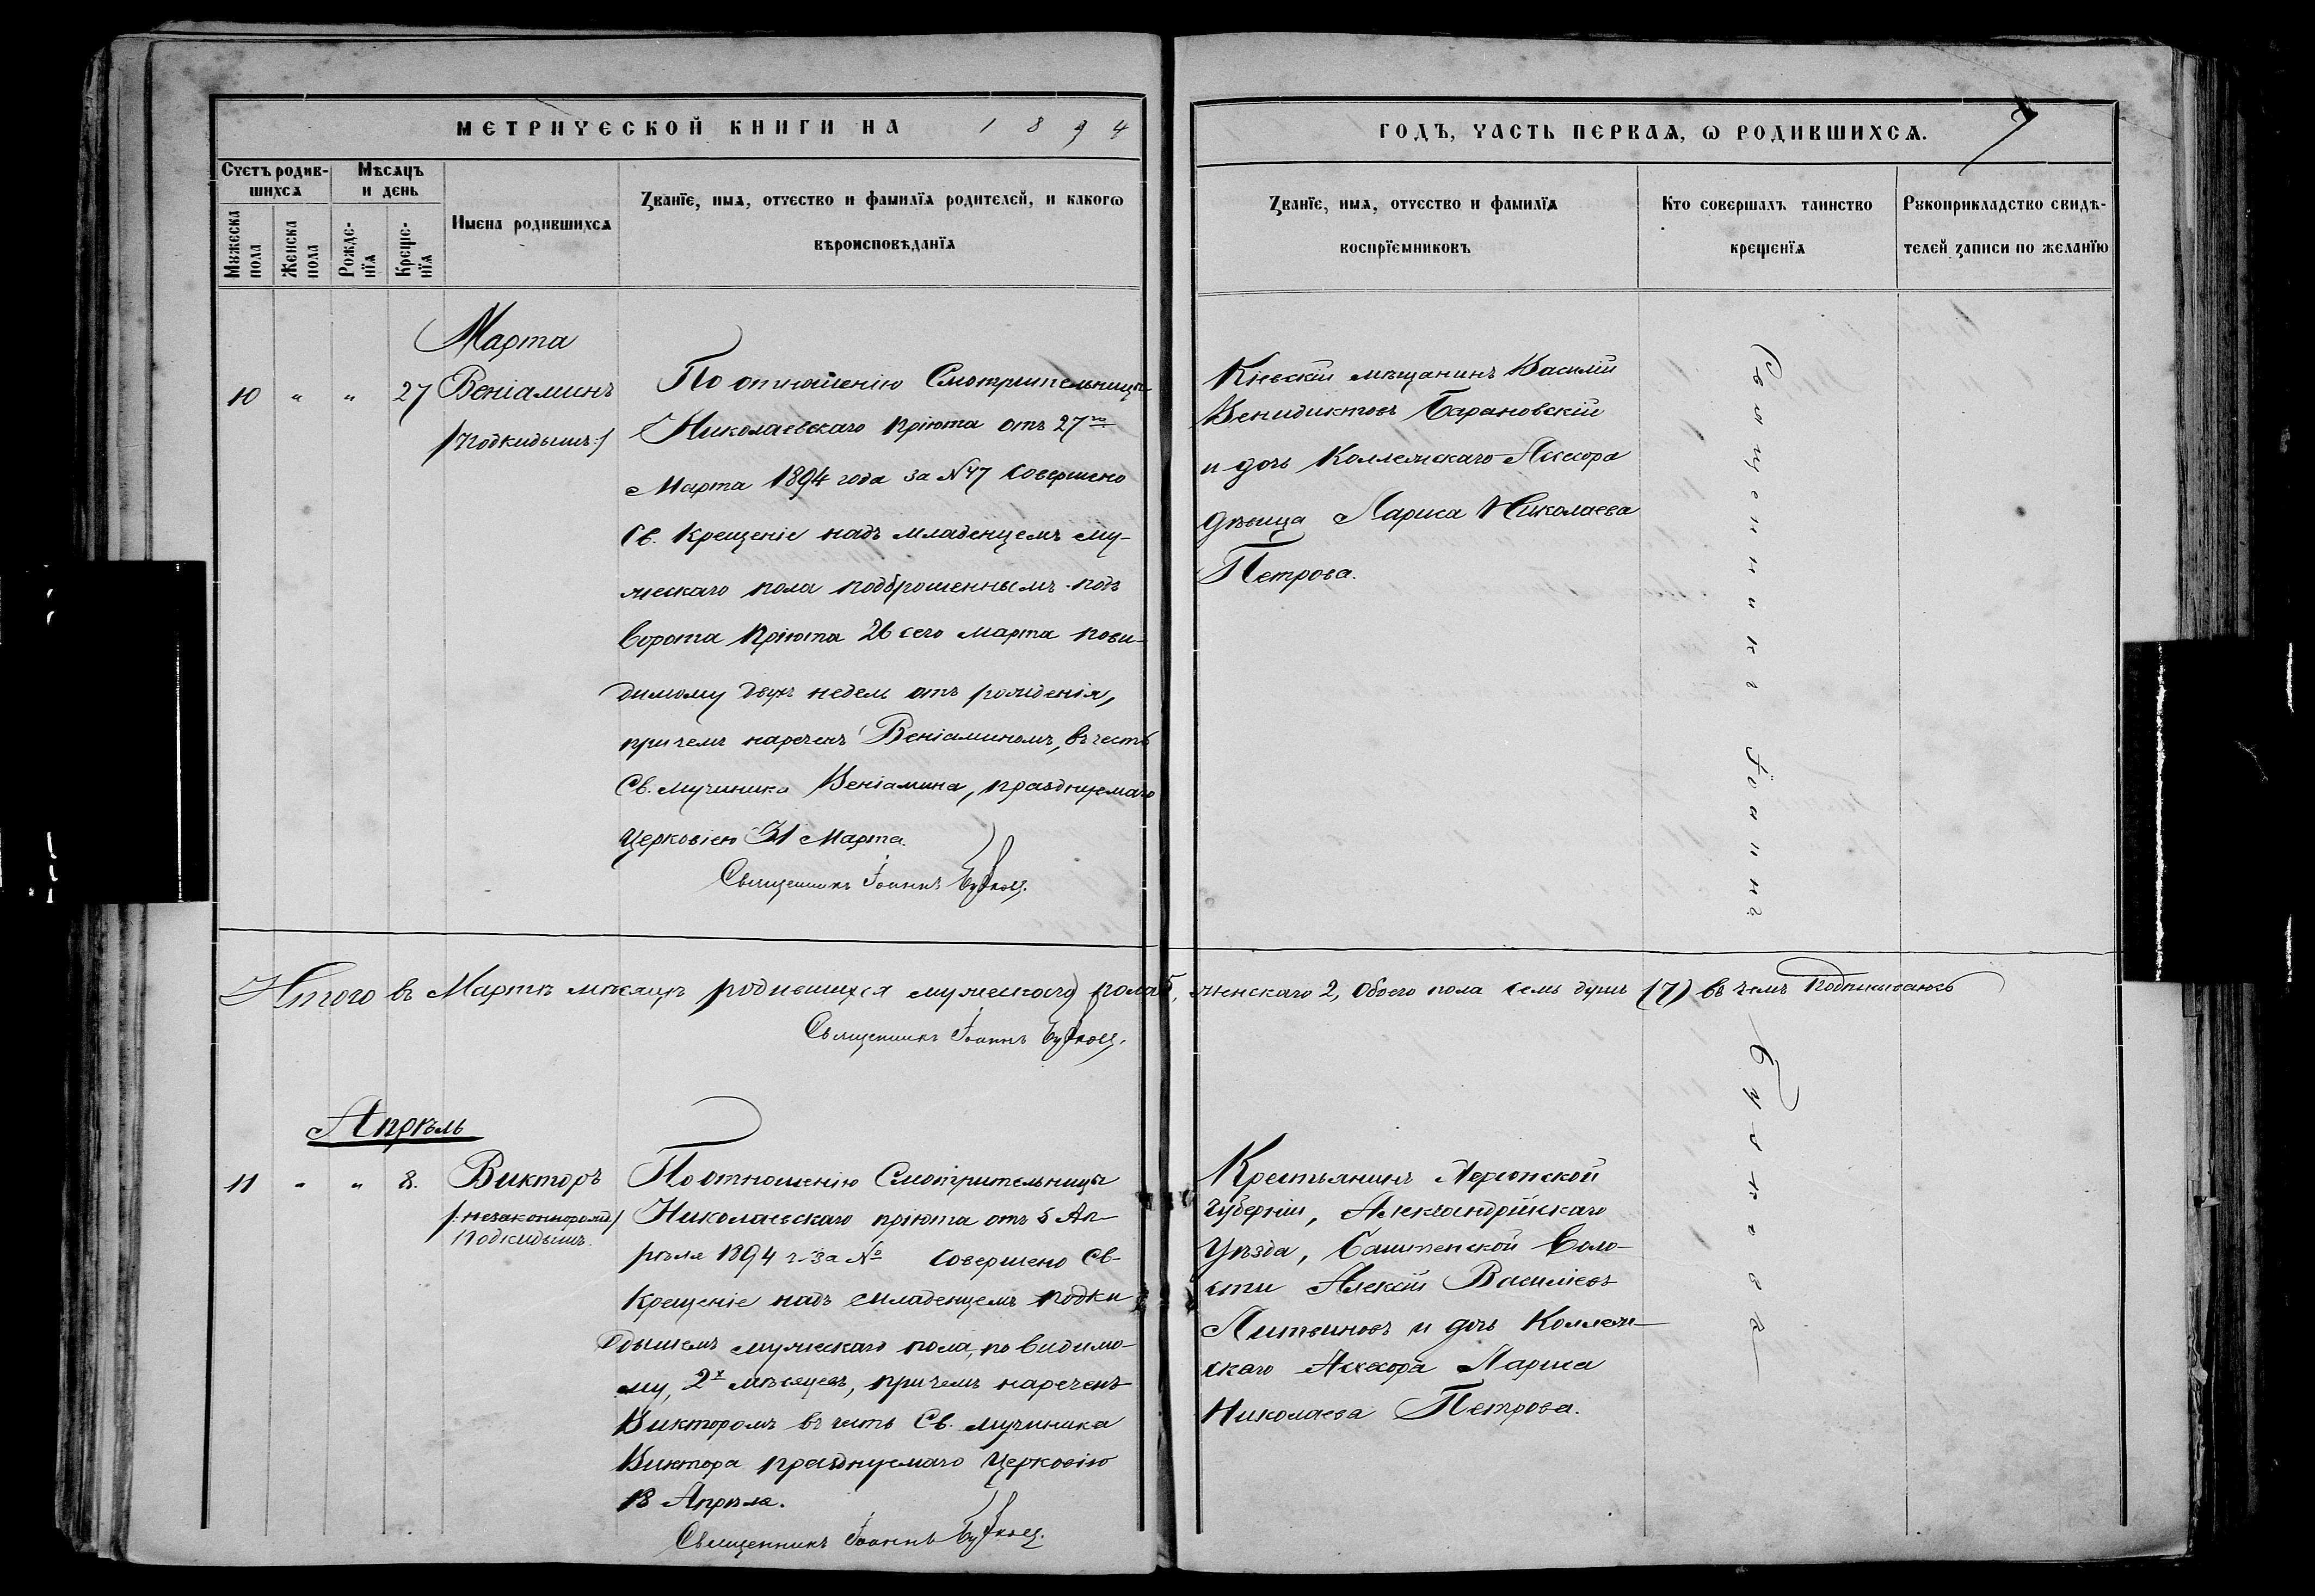 МЕТРИЧЕСКОЙ КНИГИ НА 1894
ГОДЪ, ЧАСТЬ ПЕРВАЯ, Ѡ РОДИВШИХСЯ.
7
Счетъ родив-
шихся
Мѣсяцъ
и день
Мужеска
пола
Женска
пола
Рожде-
нїя
Креще-
нїя
Имена родившихся
Званїе, имя, отчество и фамилїя родителей, и какогѡ
вѣроисповѣданїя
Званїе, имя, отчество и фамилїя
воспрїемниковъ
Кто совершалъ таинство
крещенїя
Рукоприкладство свидѣ-
телей записи по желанїю
Марта
10 " " 27 Веніаминъ
/:подкидышъ:/
По отношенію Смотрительницы
Николаевскаго пріюта отъ 27го
Марта 1894 года за №47 совершено
Св. Крещеніе надъ младенцемъ му-
жескаго пола подброшеннымъ подъ
ворота пріюта 26 сего марта пови-
димому двухъ недель отъ рожденія,
причемъ нареченъ Веніаминомъ, въ честь
Св. мученика Веніамина, празднуемаго
Церковію 31 Марта.
Священникъ Іоаннъ
Кіевскій мѣщанинъ Василій
Венидиктовъ Барановскій
и дочь Коллежскаго Ассесора
дѣвица Лариса Николаева
Петрова.
Священникъ Іоаннъ
Итого въ Мартѣ мѣсяцѣ родившихся мужескаго пола 5, женскаго 2, обоего пола семь душъ (7) въ чемъ подписываюсь
Священникъ Іоаннъ
Апрѣль
11 " " 8. Викторъ
/:незаконнорожд:/
подкидышъ.
По отношенію Смотрительницы
Николаевскаго пріюта отъ 5 Ап-
рѣля 1894 г. за № совершено Св.
Крещеніе надъ младенцемъ подки
дышемъ мужескаго пола, по видимо-
му, 2х мѣсяцевъ, причемъ нареченъ
Викторомъ въ честь Св. мученика
Виктора празднуемаго Церковію
18 Апрѣля.
Священникъ Іоаннъ
Крестьянинъ Херсонской
губерніи, Александрійскаго
уѣзда, воло-
сти Алексій Василіевъ
Литвиновъ и дочь Коллеж-
скаго Ассесора Лариса
Николаева Петрова.